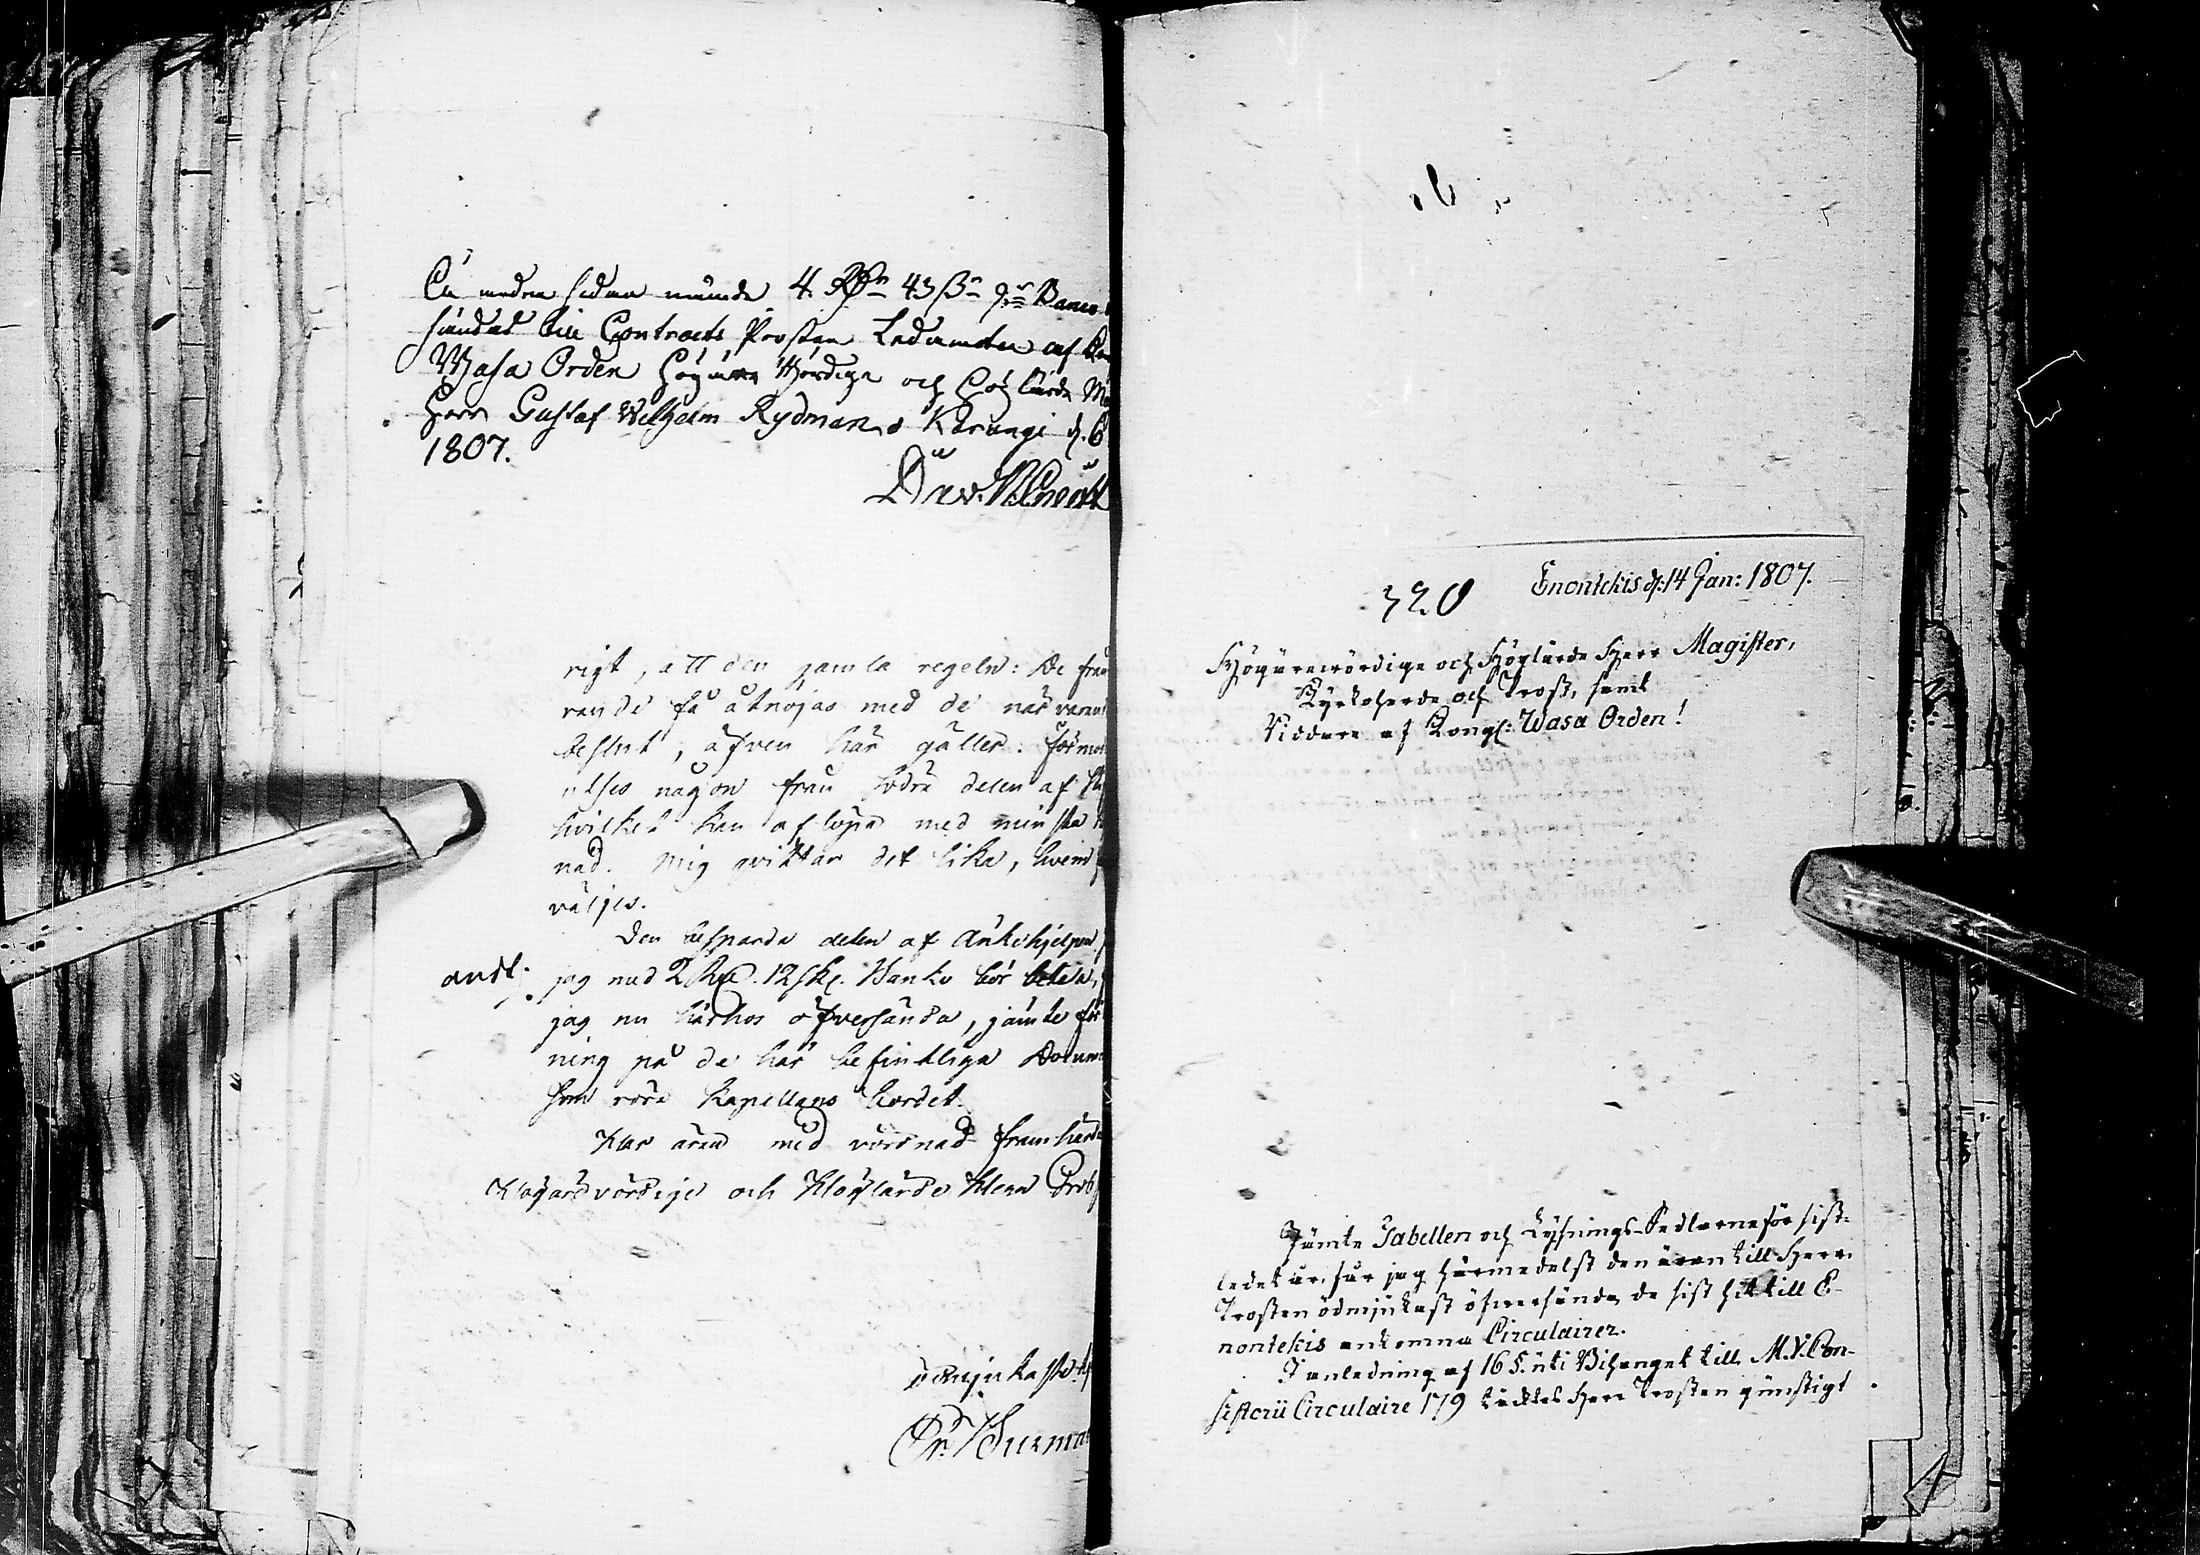 medan sidan nämde 4 Rdr 43 ß Banco
sändas till Contracts Prosten Ledamoten af
Wasa Orden Högärewördige och Höglärde
Herr Gustaf Wilhelm Rydman. Karungi d. 6
1807.
rigt, att den gamla regeln: De från
varande få åtnöjas med de närvaran
beslut, äfven här gäller. Förmod
utses någon från södra delen af
hvilket kan aflöpa med minsta
nad. Mig qvittar det lika, hvem
väljes.
Den besparda delen af Änkehjelpen,
jag med 2 Rd. 12 sk. Banko bör betala,
jag nu härhos öfversända, jämte för
ning på de här befintliga Docum
som röra Kapellans bordet.
Har äran med vördnad framhärda
Högärevördige och Höglärde Herr Prob
ödmjukaste
320
Enontekis d. 14 Jan: 1807.
Högärewördige och Höglärde Herr Magister,
Kyrkoherde och Prost, samt
Riddare af Kongl: Wasa Orden!
Jämte Tabellen och Lysnings-Sedlarne för sist-
ledet år, får jag härmedelst den äran till Herr
Prosten ödmjukast öfversända de sist hit till E-
nontekis ankomna Circulairer.
I anledning af 16 §. uti Bihanget till M.V. Con-
sistorii Circulaire 179 täcktes Herr Prosten gunstigt